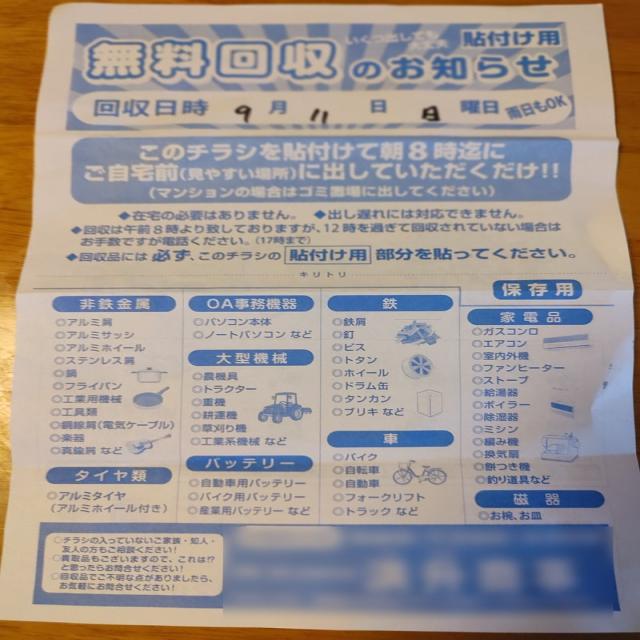 いくつ出しても大丈夫
貼付け用
無料回収のお知らせ
回収日時 9月 11日 日曜日 雨日もOK
このチラシを貼付けて朝8時迄に
ご自宅前(見やすい場所)に出していただくだけ!!
(マンションの場合はゴミ置場に出してください)
◆在宅の必要はありません。 ◆出し遅れには対応できません。
◆回収は午前8時より致しておりますが、12時を過ぎて回収されていない場合は
お手数ですが電話ください。(17時まで)
◆回収品には必ず、このチラシの貼付け用部分を貼ってください。
キリトリ
保存用
非鉄金属
◎アルミ屑
◎アルミサッシ
◎アルミホイール
◎ステンレス屑
◎鍋
◎フライパン
◎工業用機械
◎工具類
◎銅線屑(電気ケーブル)
◎楽器
◎真鍮屑 など
タイヤ類
◎アルミタイヤ
(アルミホイール付き)
OA事務機器
◎パソコン本体
◎ノートパソコン など
大型機械
◎農機具
◎トラクター
◎重機
◎耕運機
◎草刈り機
◎工業系機械 など
バッテリー
◎自動車用バッテリー
◎バイク用バッテリー
◎産業用バッテリー など
鉄
◎鉄屑
◎釘
◎ビス
◎トタン
◎ホイール
◎ドラム缶
◎タンカン
◎ブリキ など
車
◎バイク
◎自転車
◎自動車
◎フォークリフト
◎トラック など
家電品
◎ガスコンロ
◎エアコン
◎室内外機
◎ファンヒーター
◎ストーブ
◎給湯器
◎ボイラー
◎除湿器
◎ミシン
◎編み機
◎換気扇
◎餅つき機
◎釣り道具など
磁器
◎お椀、お皿
◎チラシの入っていないご家族・知人・
友人の方もご相談ください!
◎買取品もございますので、これは!?
と思ったらお問合せください!
◎回収品でご不明な点がありましたら、
お気軽にお問合せください!